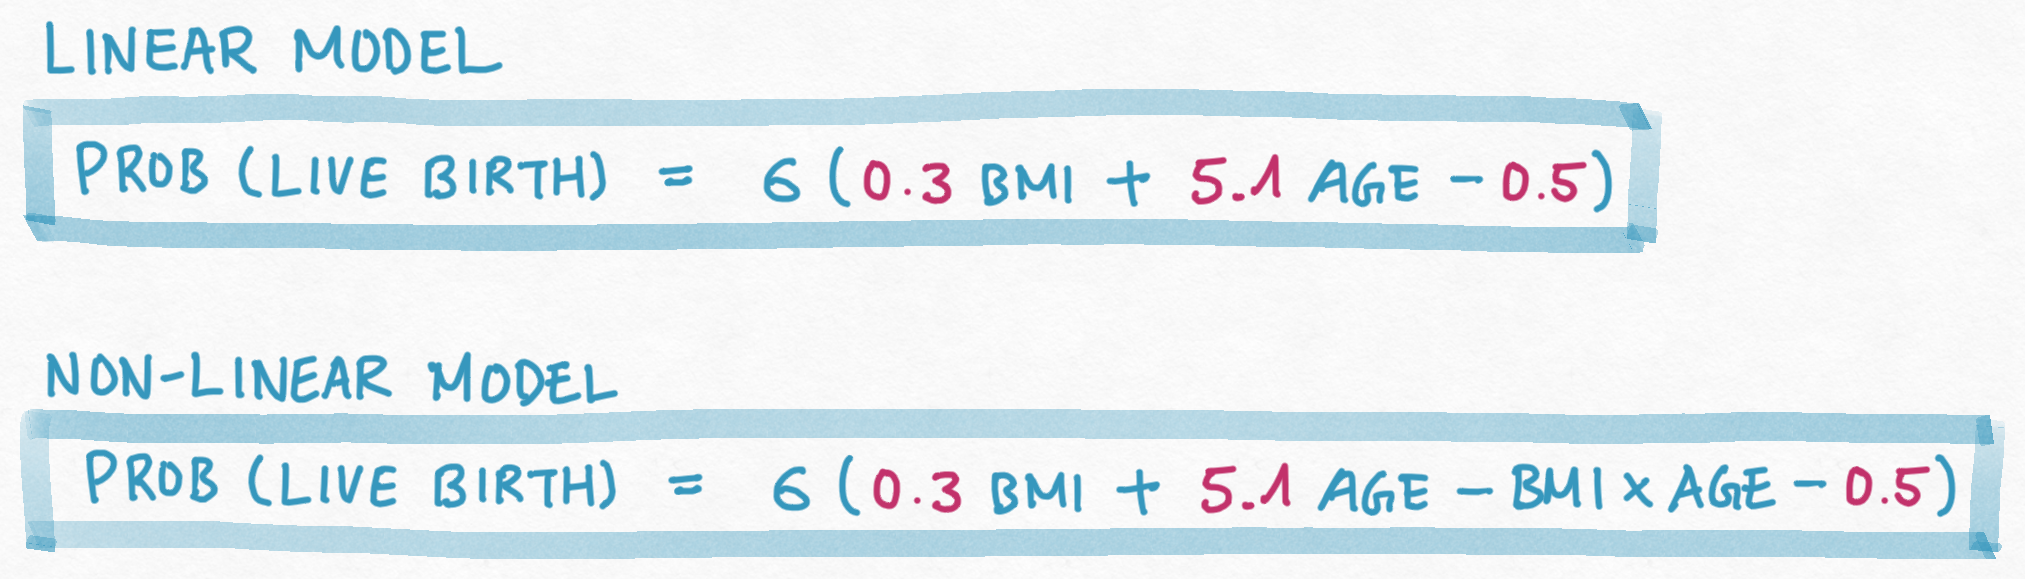 LINEAR MODEL
PROB (LIVE BIRTH) = 6 (0.3 BMI + 5.1 AGE - 0.5)
NON-LINEAR MODEL
PROB (LIVE BIRTH) = 6 (0.3 BMI + 5.1 AGE - BMI x AGE - 0.5)